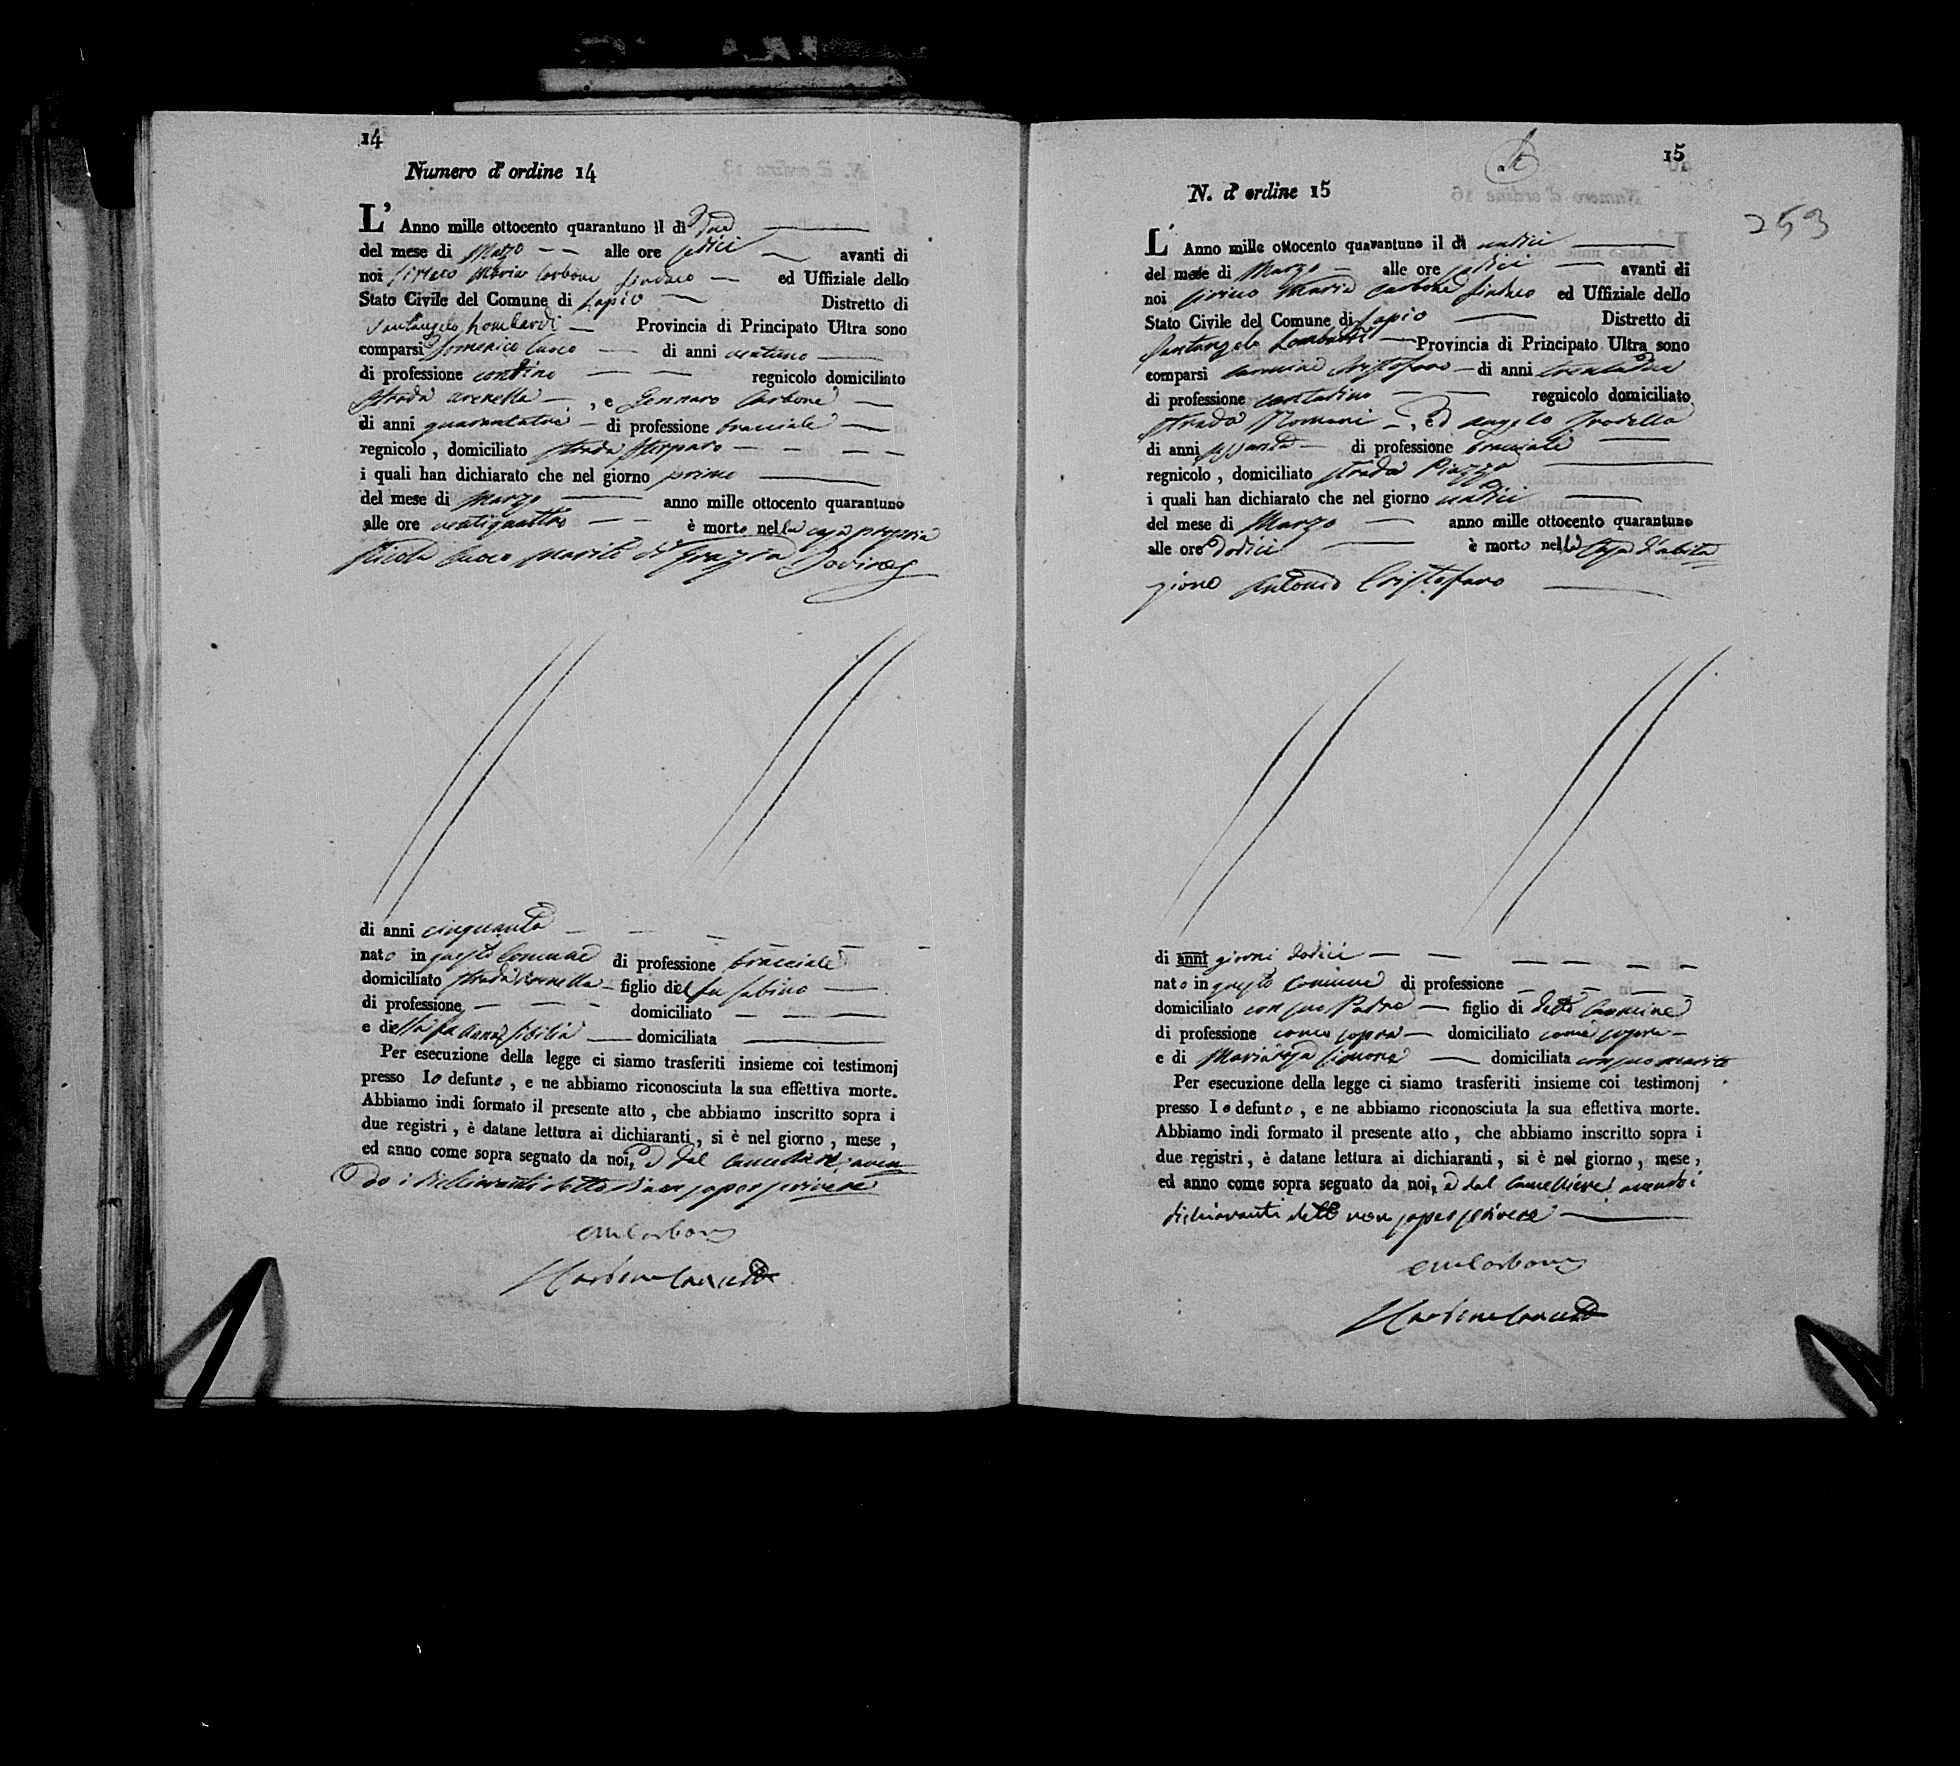 14
Numero d'ordine 14
L' Anno mille ottocento quarantuno il dì due
del mese di Marzo alle ore sedici avanti di
noi Maria Carbone Sindaco ed Uffiziale dello
Stato Civile del Comune di Lapio Distretto di
Santangelo Lombardi Provincia di Principato Ultra sono
comparsi Domenico Cuoco di anni ventuno
di professione regnicolo domiciliato
strada arenella, e Gennaro Carbone
di anni di professione bracciale
regnicolo, domiciliato strada
i quali han dichiarato che nel giorno primo
del mese di Marzo anno mille ottocento quarantuno
alle ore ventiquattro è morto nella casa propria
Nicola Cuoco marito di Grazia
di anni cinquanta
nato in questo Comune di professione bracciale
domiciliato strada arenella figlio del fu Sabino
di professione domiciliato
e della fu Anna Sibilia domiciliata
Per esecuzione della legge ci siamo trasferiti insieme coi testimonj
presso lo defunto, e ne abbiamo riconosciuta la sua effettiva morte.
Abbiamo indi formato il presente atto, che abbiamo inscritto sopra i
due registri, è datane lettura ai dichiaranti, si è nel giorno, mese,
ed anno come sopra segnato da noi, e dal Cancelliere, aven
do i dichiaranti detto di non saper scrivere
CMCarbone
15
N. d'ordine 15
253
L' Anno mille ottocento quarantuno il dì undici
del mese di Marzo alle ore avanti di
noi Maria Carbone Sindaco ed Uffiziale dello
Stato Civile del Comune di Lapio Distretto di
Santangelo Lombardi Provincia di Principato Ultra sono
comparsi Carmine Cristofaro di anni trentadue
di professione contadino regnicolo domiciliato
strada Romani, ed Angelo
di anni sessanta di professione bracciale
regnicolo, domiciliato strada Piazza
i quali han dichiarato che nel giorno undici
del mese di Marzo anno mille ottocento quarantuno
alle ore dodici è morto nella Casa d'abita
zione Antonio Cristofaro
di anni giorni dodici
nato in questo Comune di professione
domiciliato con suo Padre figlio di detto Carmine
di professione come sopra domiciliato come sopra
e di Mariarosa domiciliata con suo marito
Per esecuzione della legge ci siamo trasferiti insieme coi testimonj
presso lo defunto, e ne abbiamo riconosciuta la sua effettiva morte.
Abbiamo indi formato il presente atto, che abbiamo inscritto sopra i
due registri, è datane lettura ai dichiaranti, si è nel giorno, mese,
ed anno come sopra segnato da noi, e dal Cancelliere, avendo i
dichiaranti detto non saper scrivere
CMCarbone